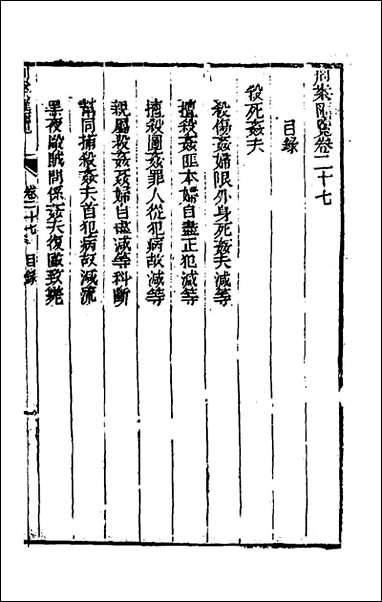 刑案匯覽卷二十七
目録
殺死姦夫
殺傷姦婦限外身死姦夫減等
擅殺姦匪本婦自盡正犯減等
擅殺圖姦罪人從犯病故減等
親屬殺姦姦婦自盡減等科斷
幫同捕殺姦夫首犯病故減流
黑夜毆賊問係姦夫復毆致斃
卷二十七 目録